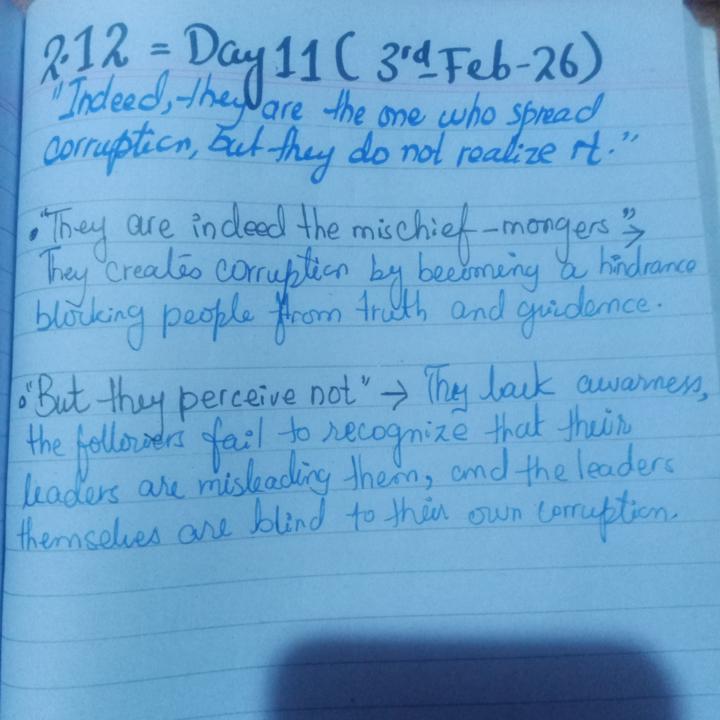 2.12 = Day 11 ( 3rd Feb-26)
"Indeed, they are the one who spread
corruption, but they do not realize it."
• "They are indeed the mischief-mongers" →
They creates corruption by becoming a hindrance
blocking people from truth and guidence.
• "But they perceive not" → They lack awarness,
the followers fail to recognize that their
leaders are misleading them, and the leaders
themselves are blind to their own corruption.